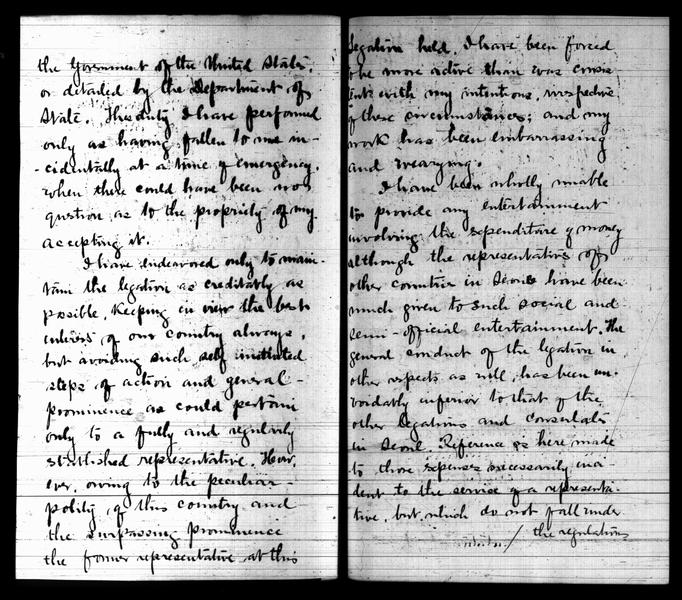 the Government of the United States,
or detailed by the Department of
State. The duty I have performed
only as having fallen to me in-
cidentally at a time of emergency,
when there could have been no
question as to the propriety of my
accepting it.
I have endeavored only to main-
tain the legation as creditably as
possible, keeping in view the best
interests of our country always,
but avoiding such self instituted
steps of action and general
prominence as could pertain
only to a fully and regularly
established representative. How-
ever, owing to the peculiar
polity of this country and
the surpassing prominence
the former representative at this
legation held, I have been forced
the more active than was consis-
tent with my intentions, irrespective
of these circumstances; and my
work has been embarrassing
and wearying.
I have been wholly unable
to provide any entertainment
involving the expenditure of money
although the representatives of
other countries in Seoul have been
much given to such social and
semi-official entertainment. The
general conduct of the legation in
other respects as well, has been una-
voidably inferior to that of the
other Legations and Consulates
in Seoul. Reference is here made
to those expenses necessarily inci-
dent to the service of a representa-
tive, but which do not fall under
the regulations